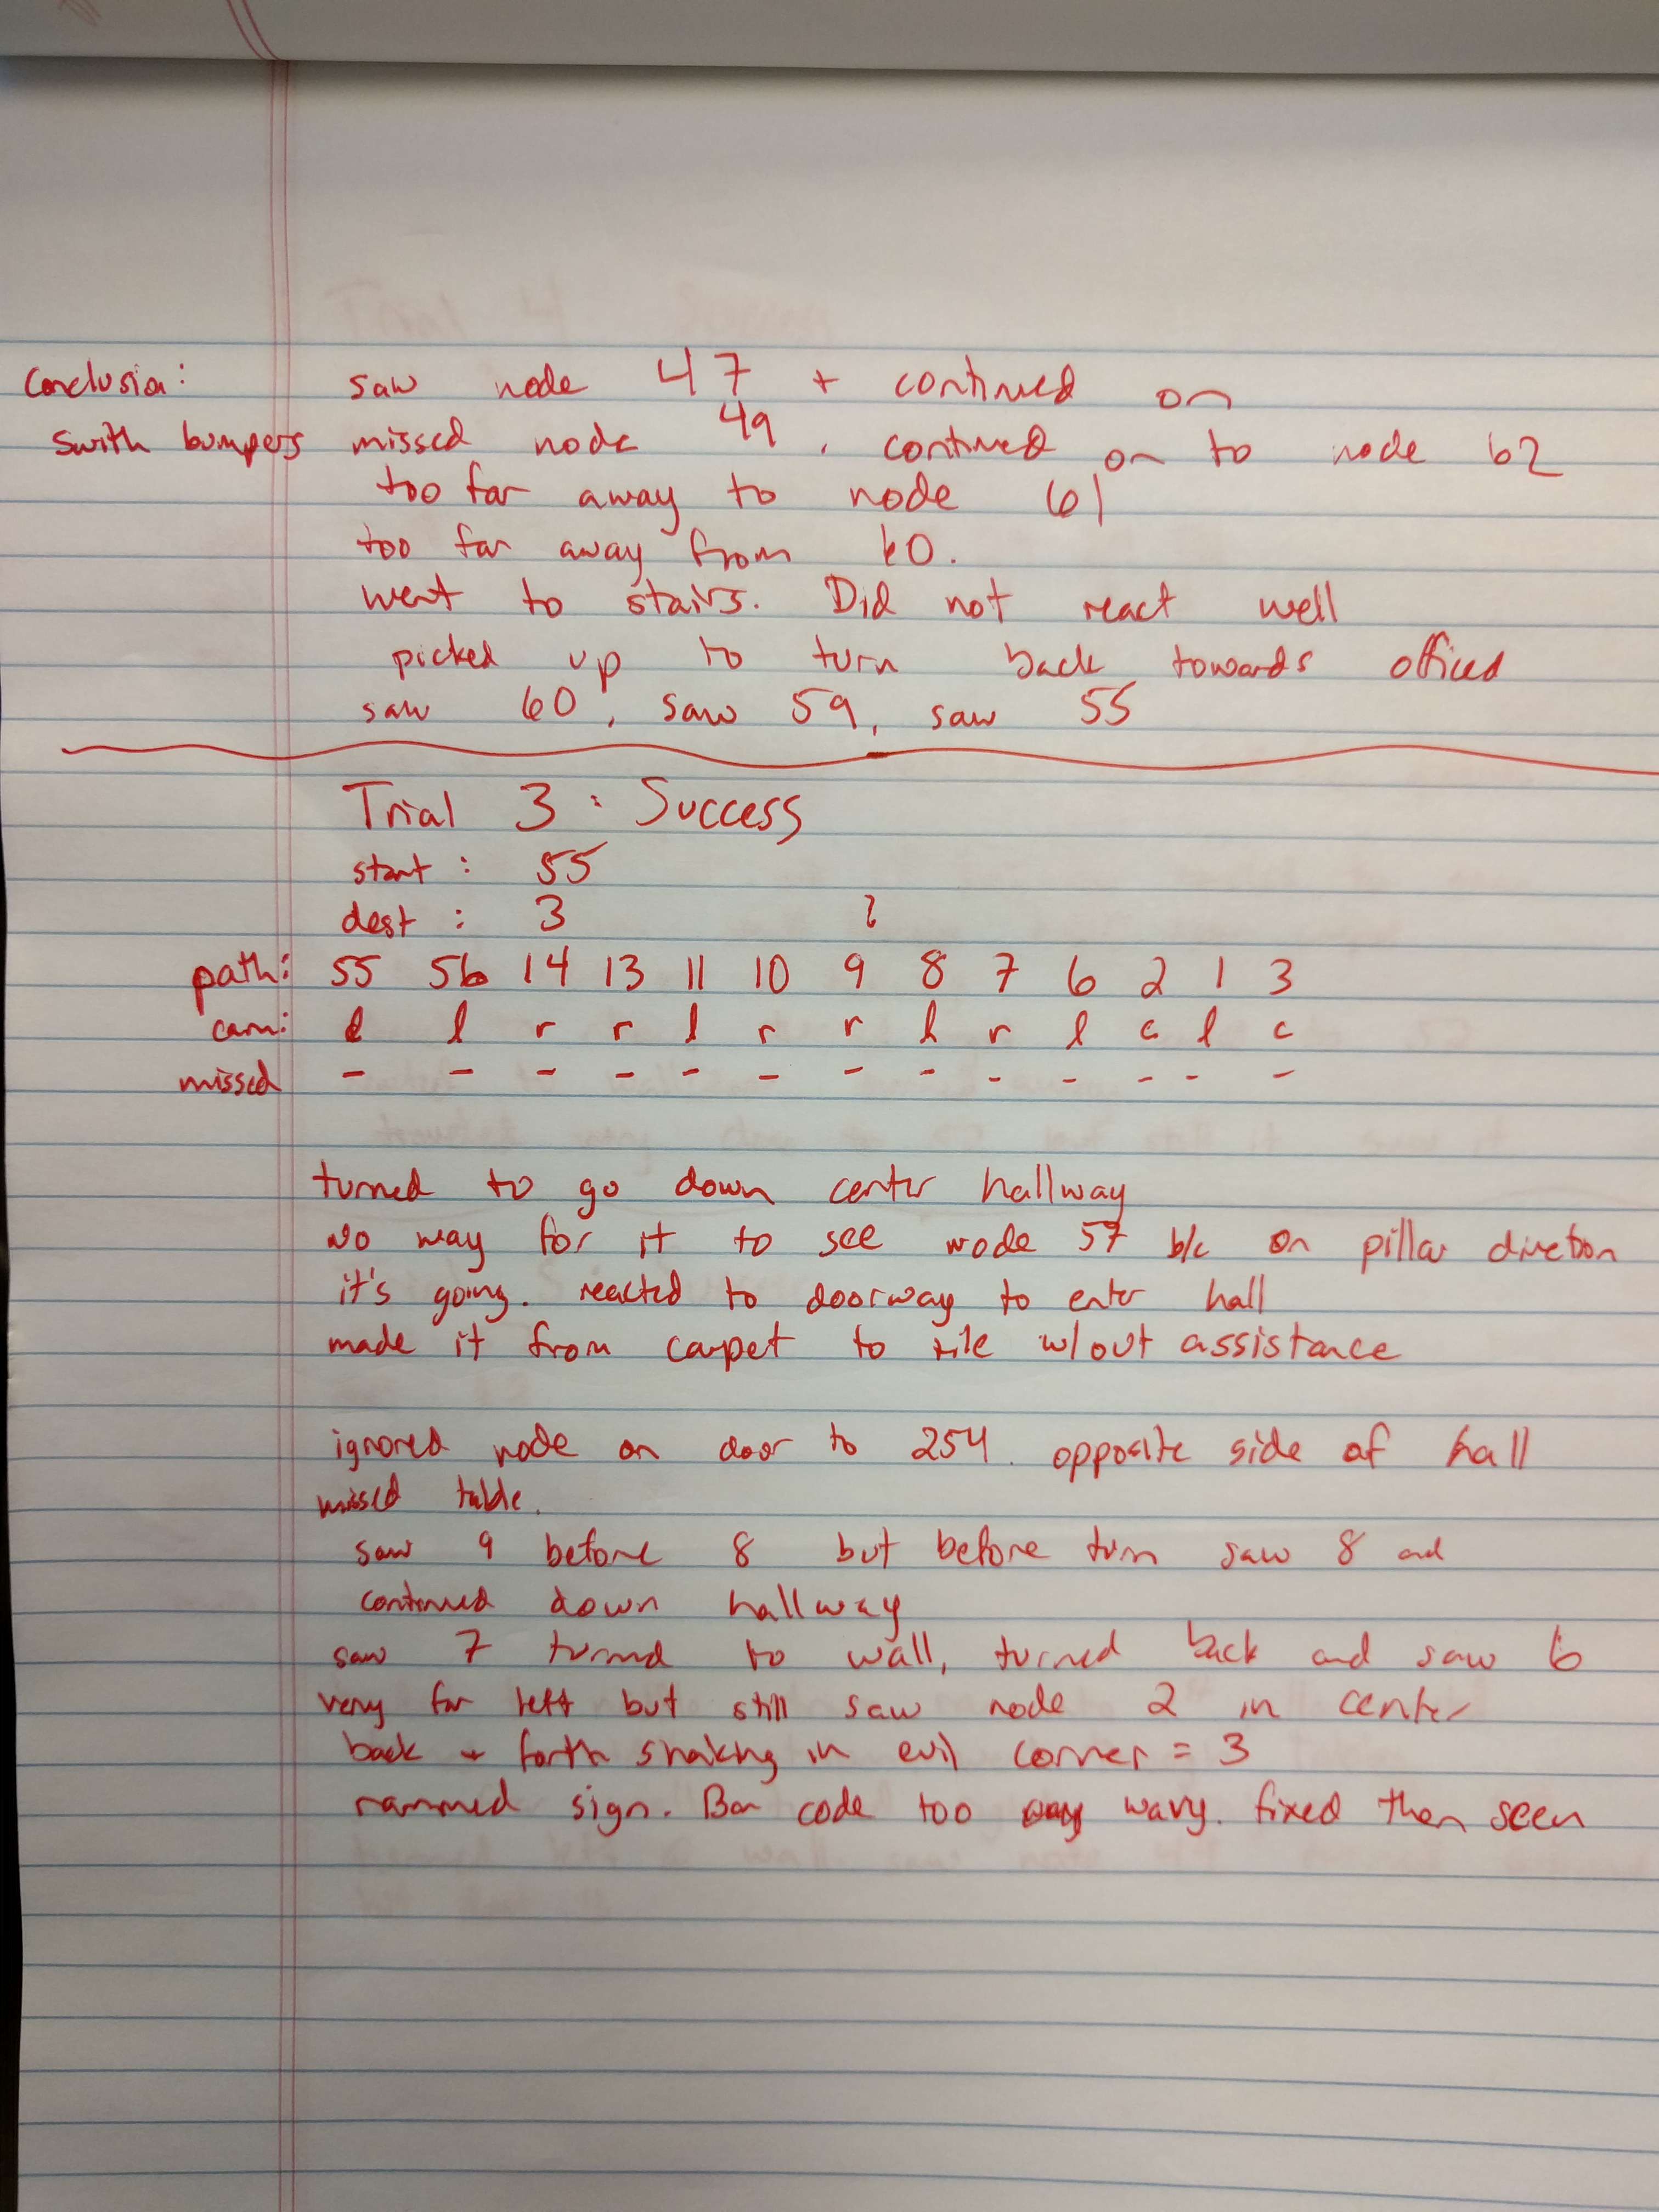 Conclusion: saw node 47 + continued on
Swith bumpers missed node 49, continued on to node 62
too far away to node 61
too far away from 60.
went to stairs. Did not react well
picked up to turn back towards offices
saw 60, saw 59, saw 55
Trial 3: Success
start: 55
dest: 3 ?
path: 55 56 14 13 11 10 9 8 7 6 2 1 3
cam: l l r r l r r l r l c l c
missed - - - - - - - - - - - - -
turned to go down center hallway
No way for it to see node 57 b/c on pillar direction
it's going. reacted to doorway to enter hall
made it from carpet to tile w/out assistance
ignored node on door to 254. opposite side of hall
missed table.
saw 9 before 8 but before turn saw 8 and
continued down hallway
saw 7 turned to wall, turned back and saw 6
very far left but still saw node 2 in center
back + forth shaking in evil corner = 3
rammed sign. Bar code too wavy. fixed then seen